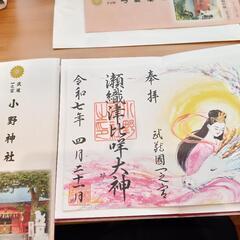 奉拝
武蔵國一之宮
瀬織津比咩大神
令和七年 四月
武蔵
一之宮
小野神社